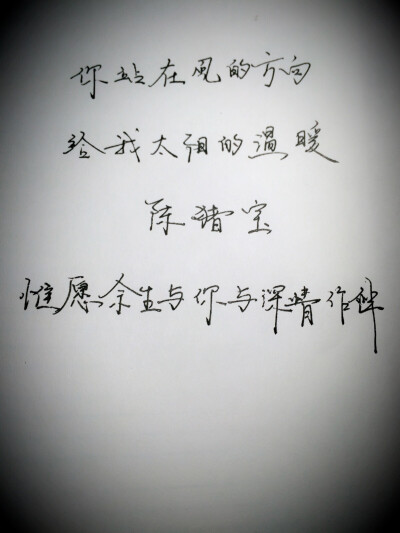 你站在风的方向
给我太阳的温暖
陈猪宝
惟愿余生与你与深情作伴